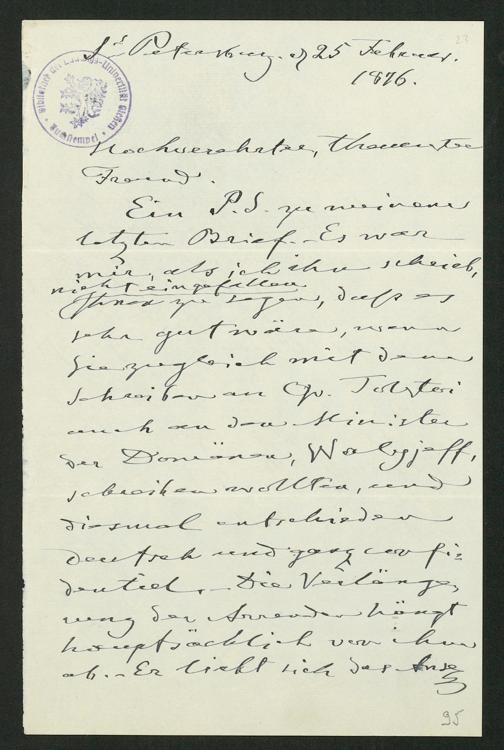 23
St Petersburg. d 25 Februar.
1876.
Bibliothek der Ludwigs-Universität Giessen
Hochverehrter, theuerster
Freund.
Ein P.S. zu meinem
letzten Brief. – Es war
mir, als ich ihn schrieb,
nicht eingefallen
Ihnen zu sagen, daß es
sehr gut wäre, wenn
Sie zugleich mit dem
Schreiben an Gr. Tolstoi
auch an den Minister
der Domänen, Walujeff,
schreiben wollten, und
diesmal entschieden
deutsch und ganz confi-
dentiel. – Die Verlänge-
rung der Arrende hängt
hauptsächlich von ihm
ab. – Er liebt sich das
95